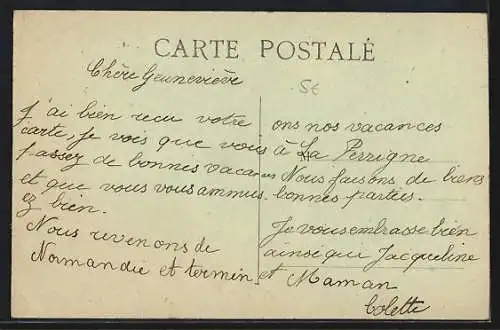 CARTE POSTALE
5€
Chère Geuneviève
J'ai bien recu votre
carte, je vois que vous
passez de bonnes vacan
et que vous vous ammus
ez bien.
Nous revenons de
Normandie et termin
ons nos vacances
à La Perrigne
Nous faisons de biens
bonnes parties.
Je vous embrasse bien
ainsi que Jacqueline
et Maman
Colette